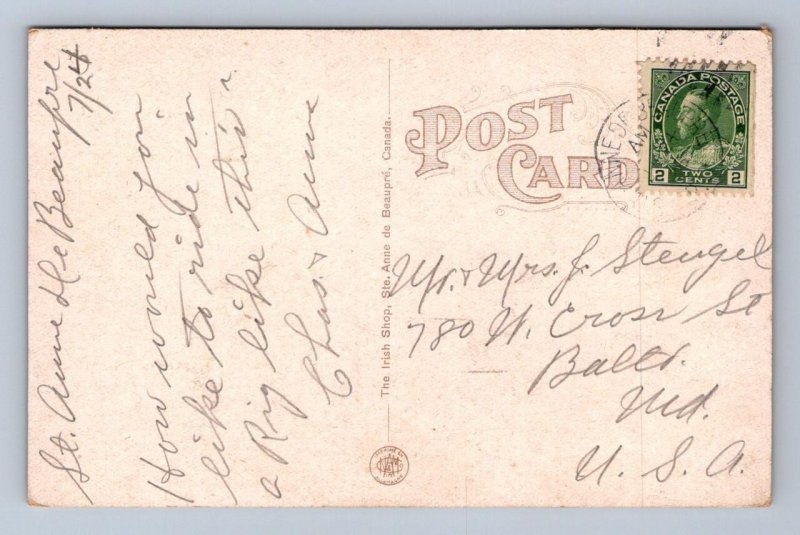 St. Anne De Beaupre
7/24
How would you
like to ride in
a Rig like this
Chas. & Anne
The Irish Shop, Ste. Anne de Beaupré, Canada.
POST
CARD
CANADA POSTAGE
2 TWO CENTS 2
AM
Mr. & Mrs. J. Stengel
780 W. Cross St
Balto.
Md.
U. S. A.